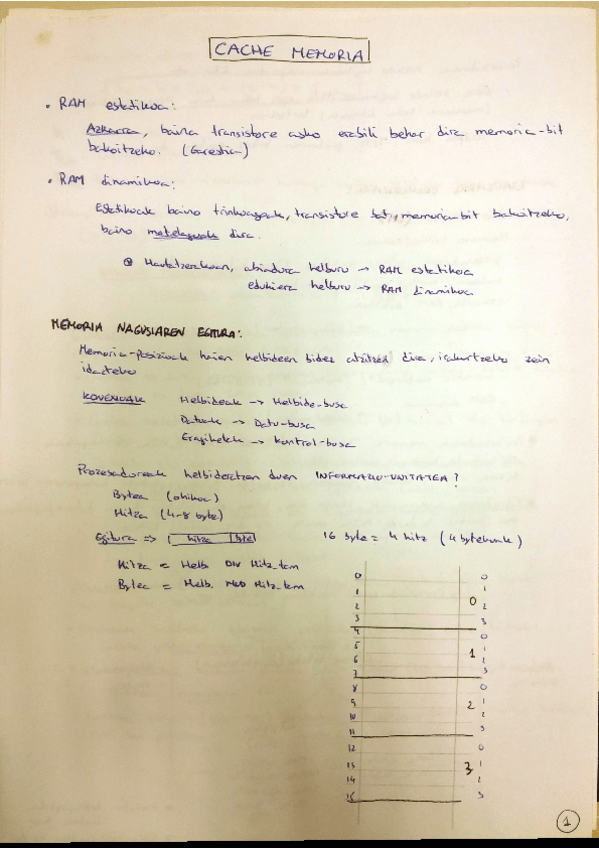 CACHE MEMORIA
• RAM estatikoa:
Azkarra, baina transistore asko erabili behar dira memoria-bit
bakoitzeko. (Garestia)
• RAM dinamikoa:
Estatikoak baino trinkoagoak, transistore bat, memoria-bit bakoitzeko,
baino motelagoak dira.
Hautatzerakoan, abiadura helburu → RAM estatikoa
edukiera helburu → RAM dinamikoa
MEMORIA NAGUSIAREN EGITURA:
Memoria-posizioak haien helbideen bidez atzitzen dira, irakurtzeko zein
idazteko
KONEXIOAK Helbideak → Helbide-busa
Datuak → Datu-busa
Eragiketak → Kontrol-busa
Prozesadoreak helbideratzen duen INFORMAZIO-UNITATEA?
Bytea (ohikoa)
Hitza (4-8 byte)
Egitura ⇒ hitza byte 16 byte = 4 hitz (4 bytekoak)
Hitza = Helb DIV Hitz_tam
Bytea = Helb. MOD Hitz_tam
0 0
1 0 1
2 2
3 3
4 0
5 1 1
6 2
7 3
8 0
9 2 1
10 2
11 3
12 0
13 3 1
14 2
15 3
1